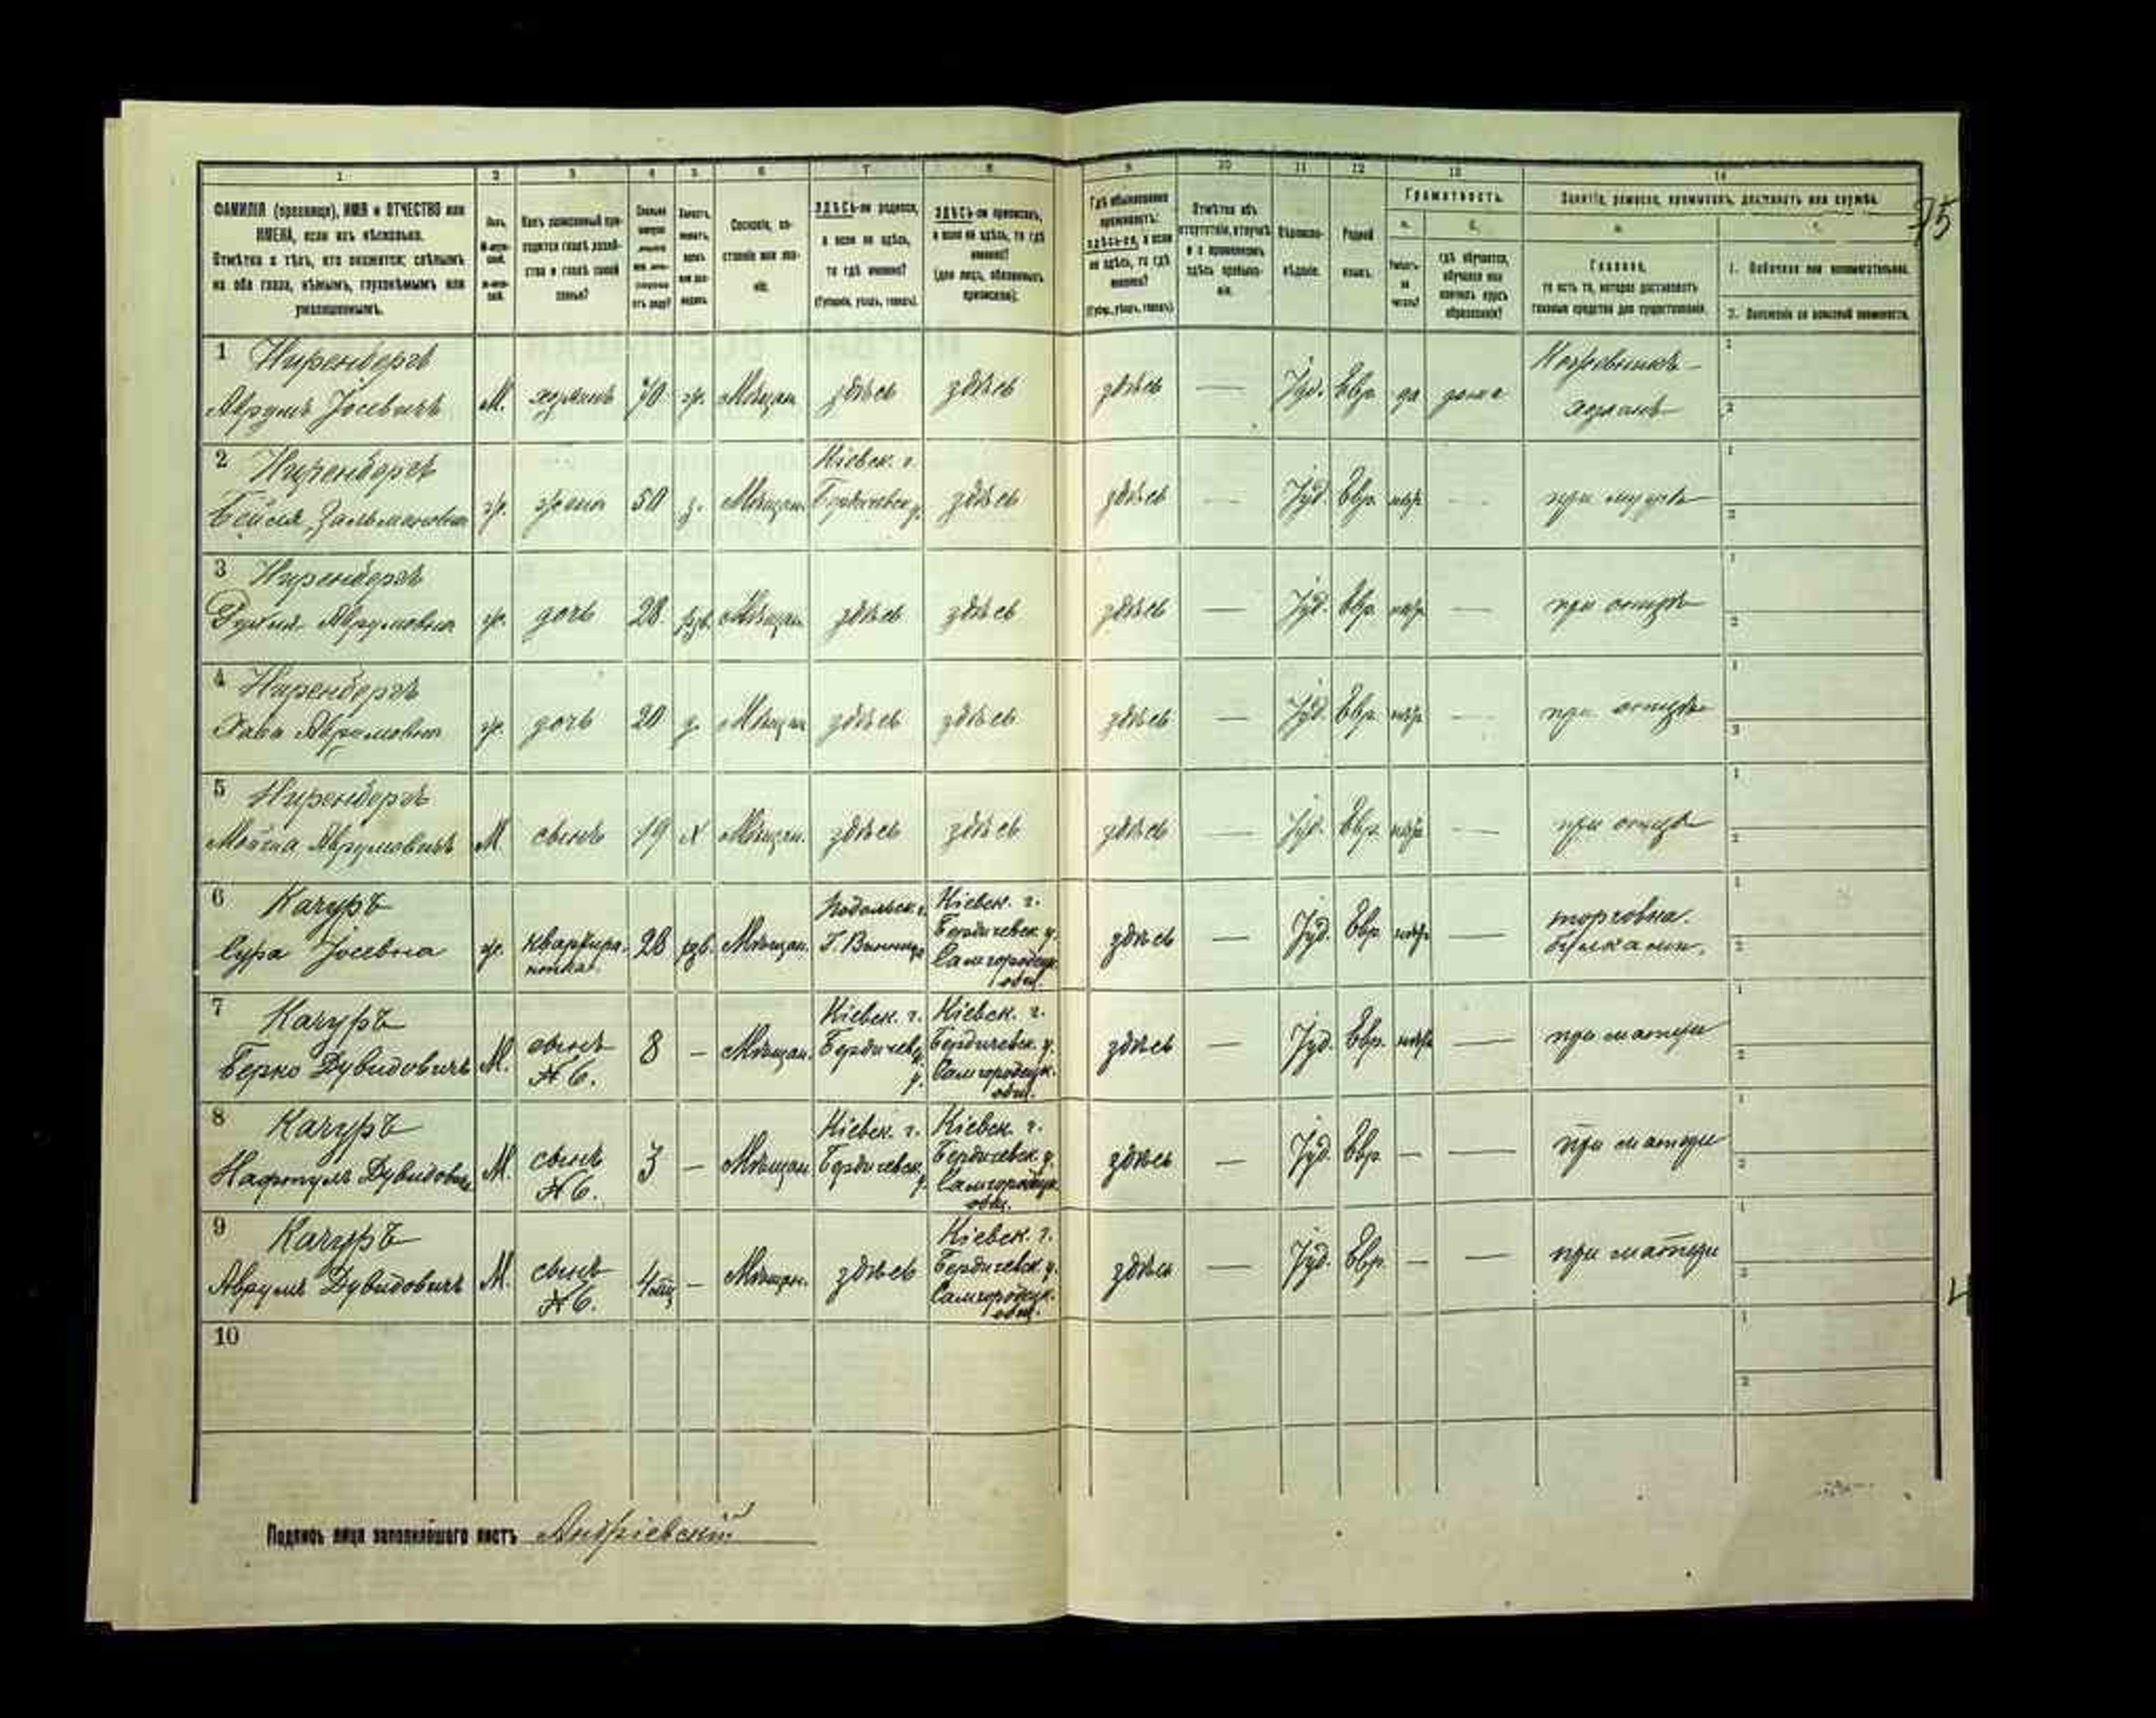 1 2 3 4 5 6 7 8 9 10 11 12 13 14
ФАМИЛІЯ (прозвище), ИМЯ и ОТЧЕСТВО или
ИМЕНА, если ихъ нѣсколько.
Отмѣтка о тѣхъ, кто окажется: слѣпымъ
на оба глаза, нѣмымъ, глухонѣмымъ или
умалишеннымъ.
Полъ.
Какъ записанный при-
ходится главѣ хозяй-
ства и главѣ своей
семьи?
Сословіе, со-
стояніе или зва-
ніе.
ЗДѢСЬ-ли родился,
а если не здѣсь,
то гдѣ именно?
(Губернія, уѣздъ, городъ).
ЗДѢСЬ-ли приписанъ,
а если не здѣсь, то гдѣ
именно?
(для лицъ, обязанныхъ
припискою).
Гдѣ обыкновенно
проживаетъ:
здѣсь-ли, а если
не здѣсь, то гдѣ
именно?
(Губер., уѣздъ, городъ).
Отмѣтка объ
отсутствіи, отлучкѣ
и о временномъ
здѣсь пребыва-
ніи.
Вѣроиспо-
вѣданіе.
Родной
языкъ.
Грамотность.
а. б.
Умѣетъ-
ли
читать?
гдѣ обучается,
обучался или
кончилъ курсъ
образованія?
Занятіе, ремесло, промыселъ, должность или служба.
Главное,
то есть то, которое доставляетъ
главныя средства для существованія.
1. Побочное или вспомогательное.
2. Положеніе по воинской повинности.
75
1 Ниренбергъ
Аврумъ Іосевичъ М. хозяинъ 70 ж. Мѣщан. здѣсь здѣсь здѣсь — Іуд. Евр. да дома
хозяинъ
2 Ниренбергъ Кіевск. г.
Бейля Зальмановна ж. жена 50 з. Мѣщан. Бердичевск. у. здѣсь здѣсь — Іуд. Евр. нѣтъ — при мужѣ
3 Ниренбергъ
Аврумовна ж. дочь 28 рзв. Мѣщан. здѣсь здѣсь здѣсь — Іуд. Евр. нѣтъ — при отцѣ
4 Ниренбергъ
Хава Аврумовна ж. дочь 20 д. Мѣщан. здѣсь здѣсь здѣсь — Іуд. Евр. нѣтъ — при отцѣ
5 Ниренбергъ
Мойша Аврумовичъ М. сынъ 19 х Мѣщан. здѣсь здѣсь здѣсь — Іуд. Евр. нѣтъ — при отцѣ
6 Качуръ
Сура Іосевна ж. квартира-
нтка. 28 рзв. Мѣщан. Подольск. г.
Г. Винница
Кіевск. г.
Бердичевск. у.
Самгородецк.
общ. здѣсь — Іуд. Евр. нѣтъ
торговка
булками.
7 Качуръ
Берко Дувидовичъ М. сынъ
№ 6. 8 — Мѣщан. Кіевск. г.
Бердичев.
у.
Кіевск. г.
Бердичевск. у.
Самгородецк.
общ. здѣсь — Іуд. Евр. нѣтъ — при матери
8 Качуръ
Нафтулъ Дувидович М. сынъ
№ 6. 3 — Мѣщан. Кіевск. г.
Бердичевск.
у.
Кіевск. г.
Бердичевск. у.
Самгородецк.
общ. здѣсь — Іуд. Евр. — — при матери
9 Качуръ
Аврумъ Дувидовичъ М. сынъ
№ 6. 4 мѣц — Мѣщан. здѣсь
Кіевск. г.
Бердичевск. у.
Самгородецк.
общ. здѣсь — Іуд. Евр. — — при матери
10
Подпись лица заполнившаго листъ Андріевскій